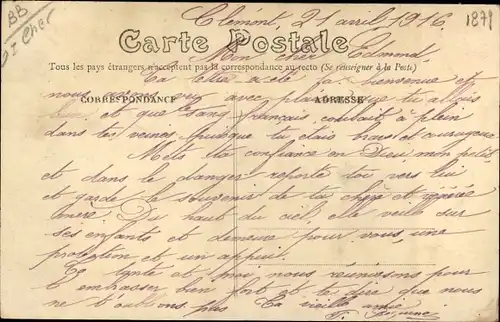 BB
= Cher
1871
Clémont, 21 avril 1916
Carte Postale
Mon cher
Tous les pays étrangers n'acceptent pas la correspondance au recto (Se renseigner à la Poste)
Ta lettre a été la bienvenue et
nous avons vu avec plaisir que tu allais
CORRESPONDANCE
ADRESSE
bien et que sang français coulait à plein
dans tes veines puisque tu étais brave et courageux
Mets ta confiance en Dieu mon petit
et dans le danger reporte toi vers lui
et garde le souvenir de ta chère et
mère. Du haut du ciel elle veille sur
ses enfants et demeure pour vous une
protection et un appui.
Ta et moi nous réunissons pour
t'embrasser bien fort et te dire que nous
ne t'oublions pas Ta vieille amie